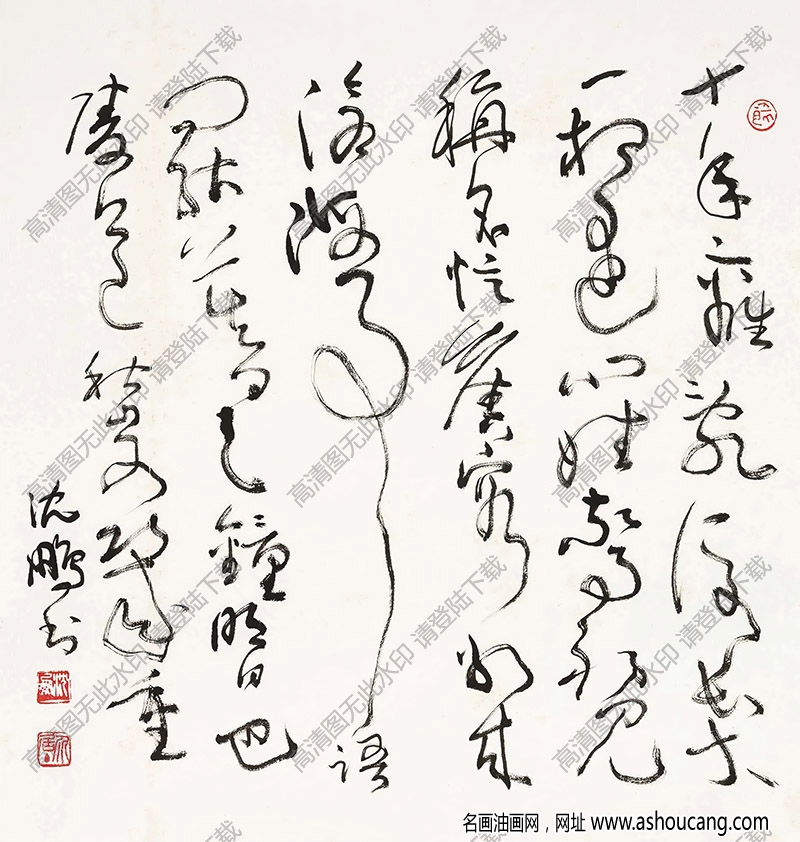 十年離亂後長大
一相逢問姓驚初見
稱名憶舊容別來
滄海事語
罷暮天鐘明日巴
陵道秋山又幾重
沈鵬書
高清图无此水印 请登陆下载
名画油画网，网址 www.ashoucang.com